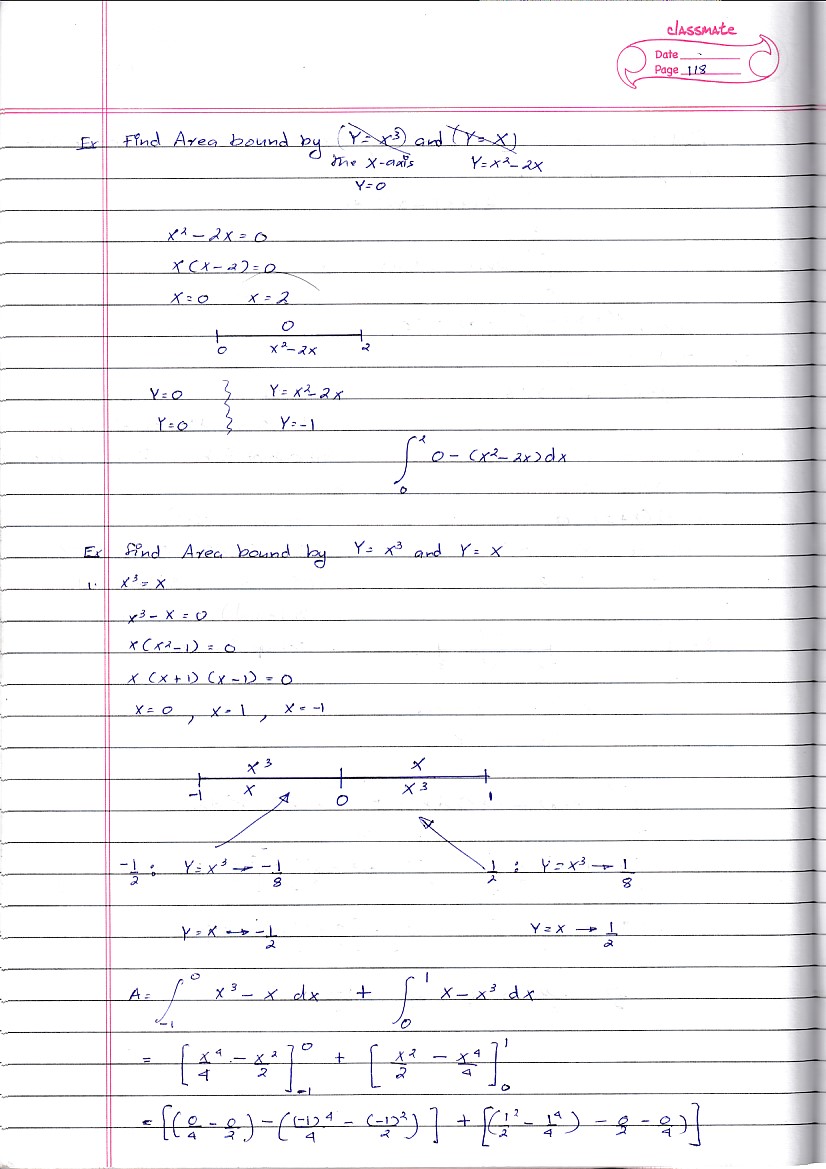 classmate
Date
Page 118
Ex Find Area bound by (Y=x³) and (Y=X)
the X-axis Y=x²-2x
Y=0
x²-2x=0
x(x-2)=0
x=0 x=2
0
0 x²-2x 2
Y=0 } Y=x²-2x
Y=0 } Y=-1
∫₀² 0-(x²-2x)dx
Ex find Area bound by Y=x³ and Y=x
1. x³=x
x³-x=0
x(x²-1)=0
x(x+1)(x-1)=0
x=0, x=1, x=-1
x³ x
-1 x 0 x³ 1
-1/2 : Y=x³ → -1/8 1/2 : Y=x³ → 1/8
Y=x → -1/2 Y=x → 1/2
A= ∫₋₁⁰ x³-x dx + ∫₀¹ x-x³ dx
= [x⁴/4 - x²/2]₋₁⁰ + [x²/2 - x⁴/4]₀¹
= [(0/4 - 0/2) - ((-1)⁴/4 - (-1)²/2)] + [(1²/2 - 1⁴/4) - 0/2 - 0/4)]